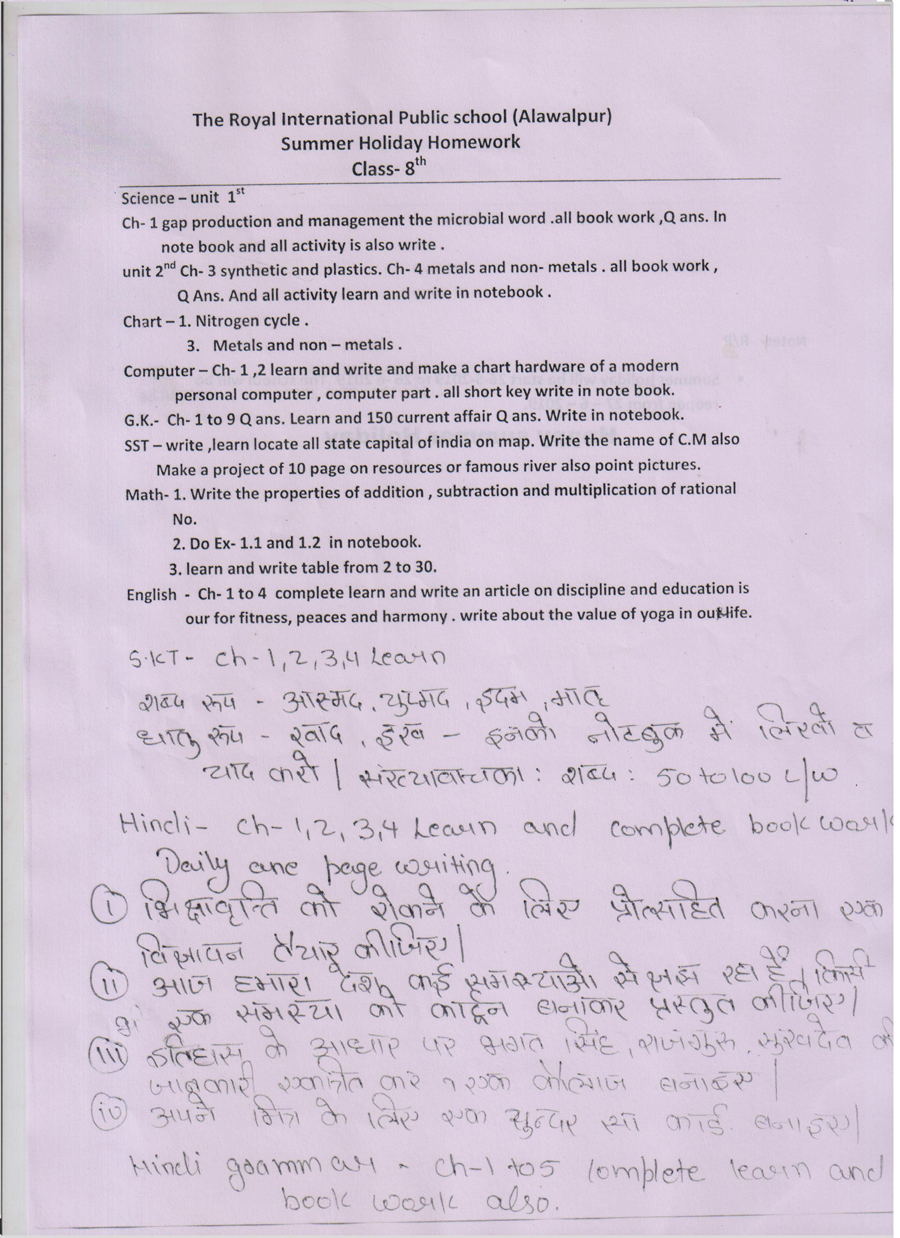 The Royal International Public school (Alawalpur)
Summer Holiday Homework
Class- 8th
Science – unit 1st
Ch- 1 gap production and management the microbial word .all book work ,Q ans. In
note book and all activity is also write .
unit 2nd Ch- 3 synthetic and plastics. Ch- 4 metals and non- metals . all book work ,
Q Ans. And all activity learn and write in notebook .
Chart – 1. Nitrogen cycle .
3. Metals and non – metals .
Computer – Ch- 1 ,2 learn and write and make a chart hardware of a modern
personal computer , computer part . all short key write in note book.
G.K.- Ch- 1 to 9 Q ans. Learn and 150 current affair Q ans. Write in notebook.
SST – write ,learn locate all state capital of india on map. Write the name of C.M also
Make a project of 10 page on resources or famous river also point pictures.
Math- 1. Write the properties of addition , subtraction and multiplication of rational
No.
2. Do Ex- 1.1 and 1.2 in notebook.
3. learn and write table from 2 to 30.
English - Ch- 1 to 4 complete learn and write an article on discipline and education is
our for fitness, peaces and harmony . write about the value of yoga in out life.
S.KT - Ch-1,2,3,4 Learn
शब्द रूप - अस्मद, युष्मद, इदम, मातृ
धातु रूप - खाद, - इनको नोटबुक में लिखो व
याद करो | शब्द : 50 to 100 L/W
Hindi- Ch-1,2,3,4 Learn and complete book work
Daily one page writing.
(i) भिक्षावृत्ति को रोकने के लिए प्रोत्साहित करना एक
विज्ञापन तैयार कीजिए|
(ii) आज हमारा देश कई समस्याओ से जूझ रहा है | किसी
एक समस्या को कार्टून बनाकर प्रस्तुत कीजिए|
(iii) इतिहास के आधार पर भगत सिंह, राजगुरु, सुखदेव की
जानकारी एकत्रित कर एक कोलाज बनाइए |
(iv) अपने मित्र के लिए एक सुन्दर सा कार्ड बनाइए|
Hindi grammar - Ch-1 to 5 complete learn and
book work also.